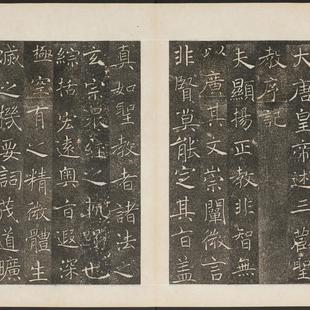 大唐皇帝述三藏聖
教序記
夫顯揚正教非智無
以廣其文崇闡微言
非賢莫能定其旨蓋
真如聖教者諸法之
玄宗眾經之軌躅也
綜括宏遠奧旨遐深
極空有之精微體生
滅之機要詞茂道曠